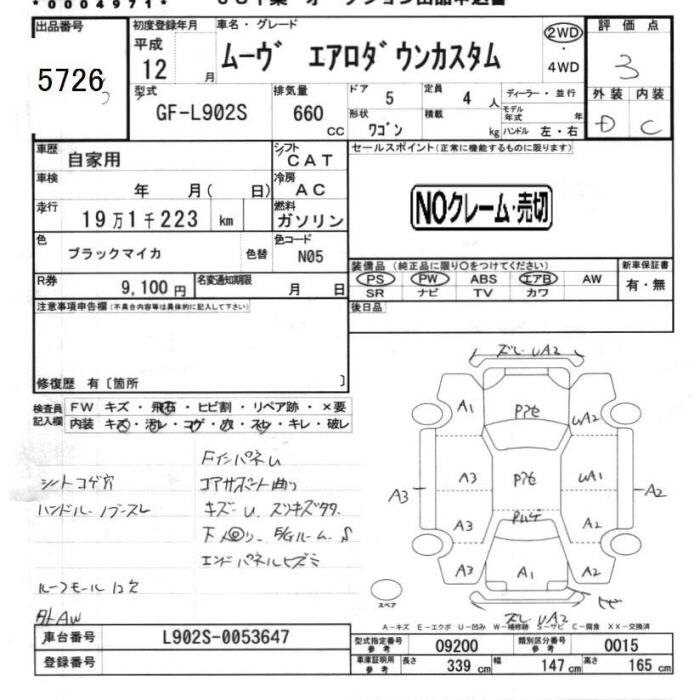 *0004971*
出品番号
5726
初度登録年月
平成
12 月
車名・グレード
ムーヴ エアロダウンカスタム
2WD
4WD
評価点
3
外装 内装
D C
型式
GF-L902S
排気量
660
CC
ドア
5
定員
4 人
ディーラー・並行
形状
ワゴン
積載
kg
モデル年式 年
ハンドル 左・右
車歴
自家用
シフト
CAT
車検
年 月( 日)
冷房
AC
走行
19万1千223 km
燃料
ガソリン
色
ブラックマイカ
色替
色コード
N05
R券
9,100 円
名変通知期限
月 日
セールスポイント(正常に機能するものに限ります)
NOクレーム・売切
装備品(純正品に限り○をつけてください)
PS PW ABS エアB AW
SR ナビ TV カワ
新車保証書
有・無
後日品
注意事項申告欄(不具合内容等は具体的に記入して下さい)
修復歴 有〔箇所 〕
検査員記入欄
FW キズ・飛石・ヒビ割・リペア跡・×要
内装 キズ・汚レ・コゲ・穴・スレ・キレ・破レ
FインパネU
シートコゲ穴
コアサポート曲り
ハンドル・ノブスレ
エンドパネルヒズミ
ルーフモール欠
外AW
ズレ・UA2
A1
Pアセ
UA2
A3
A3
Pアセ
UA1
A2
A3
Pハゲ
A2
A3
A1
A2
ズレ・UA2
スペア
A－キズ E－エクボ U－凹み W－補修跡 S－サビ C－腐食 XX－交換済
車台番号
L902S-0053647
登録番号
型式指定番号
参考
09200
類別区分番号
参考
0015
車庫証明用
参考
長さ
339 cm
幅
147 cm
高さ
165 cm